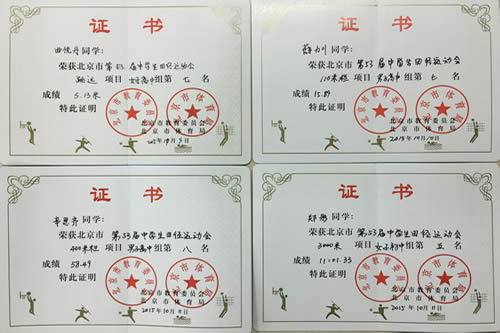 证 书
曲悦丹同学：
荣获北京市第53届中学生田径运动会
跳远 项目 女子高中组第 七 名
成绩 5.13米
特此证明
北京市教育委员会
北京市体育局
证 书
薛力川同学：
荣获北京市第53届中学生田径运动会
110米栏 项目 男子高中组第 七 名
成绩 15.89
特此证明
北京市教育委员会
北京市体育局
2015年10月10日
证 书
辛思齐同学：
荣获北京市第53届中学生田径运动会
400米栏 项目 男子高中组第 八 名
成绩 58.49
特此证明
北京市教育委员会
北京市体育局
2015年10月11日
证 书
郑彤同学：
荣获北京市第53届中学生田径运动会
3000米 项目 女子初中组第 五 名
成绩 11:01.33
特此证明
北京市教育委员会
北京市体育局
2015年10月11日